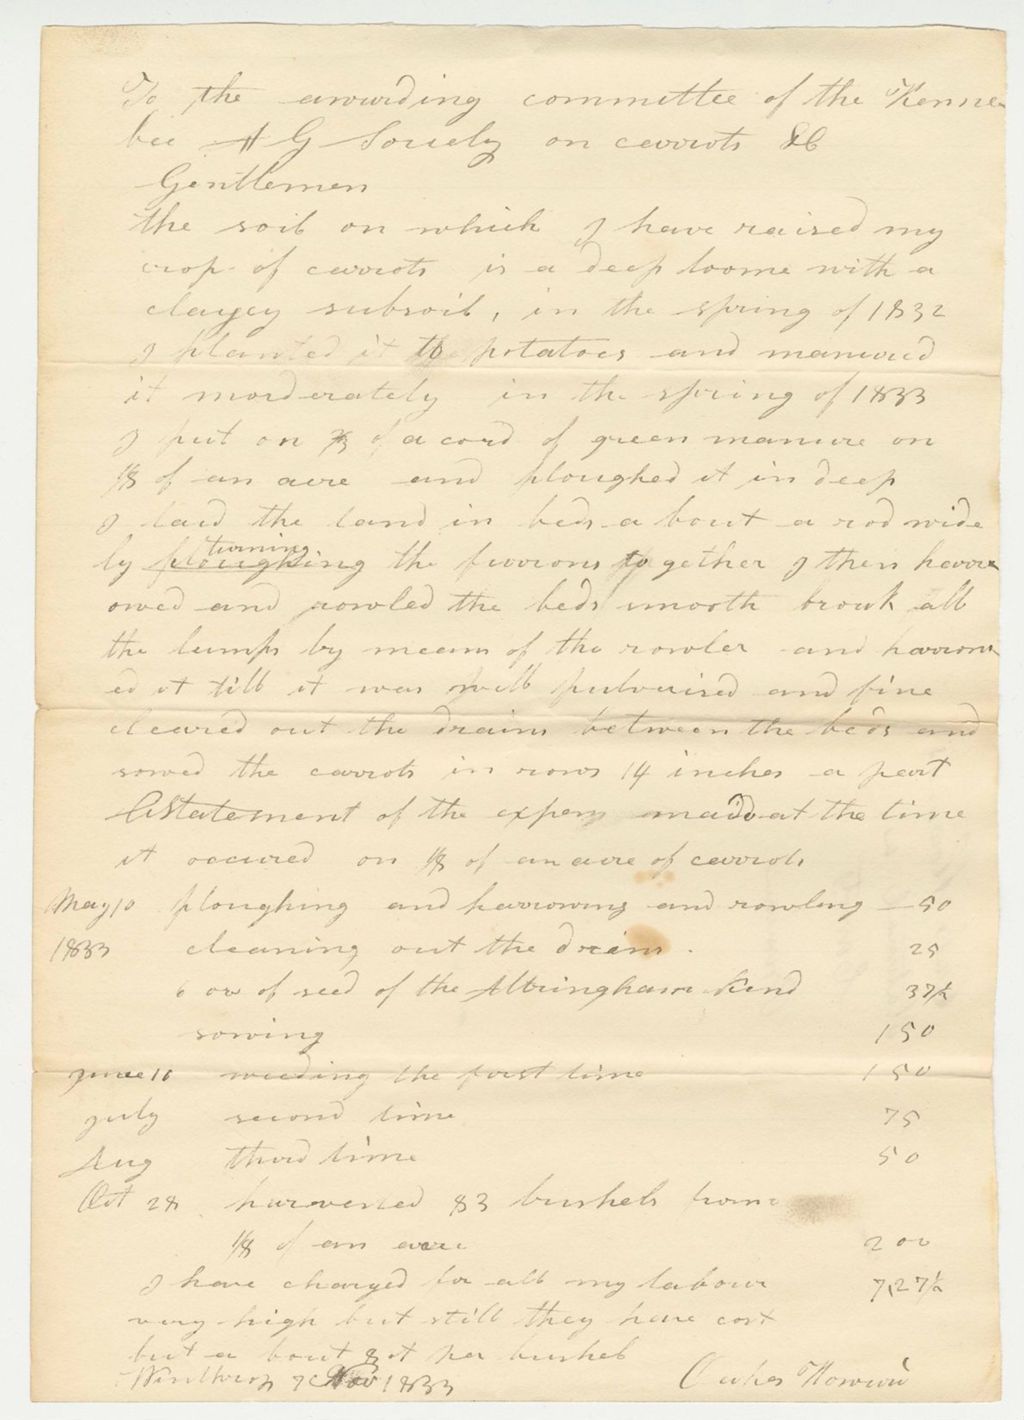 To the awarding committee of the Kenne
bec A G Society on carrots &C
Gentlemen
the soil on which I have raised my
crop of carrots is a deep loome with a
clayey subsoil, in the spring of 1832
I planted it to potatoes and manured
it morderately in the spring of 1833
I put on of a cord of green manure on
1/8 of an acre and ploughed it in deep
I laid the land in beds a bout a rod wide
by ploughing turning the furrows together I then harr
owed and rowled the beds smooth brouk all
the lumps by means of the rowler and harrow
ed it till it was well pulverised and fine
cleared out the drains between the beds and
sowed the carrots in rows 14 inches a part
A Statement of the expens made at the time
it occured on 1/8 of an acre of carrots
May 10 ploughing and harrowing and rowling — 50
1833 cleaning out the drains . 25
6 oz of seed of the Altringham kind 37 1/2
sowing 1 50
June 10 weeding the first time 1 50
July second time 75
Aug third time 50
Oct 28 harvested 83 bushels from
1/8 of an acre 2 00
I have charged for all my labour 7,27 1/2
very high but still they have cost
but a bout ct per bushel
Winthrop Nov 1833 Oakes Howard